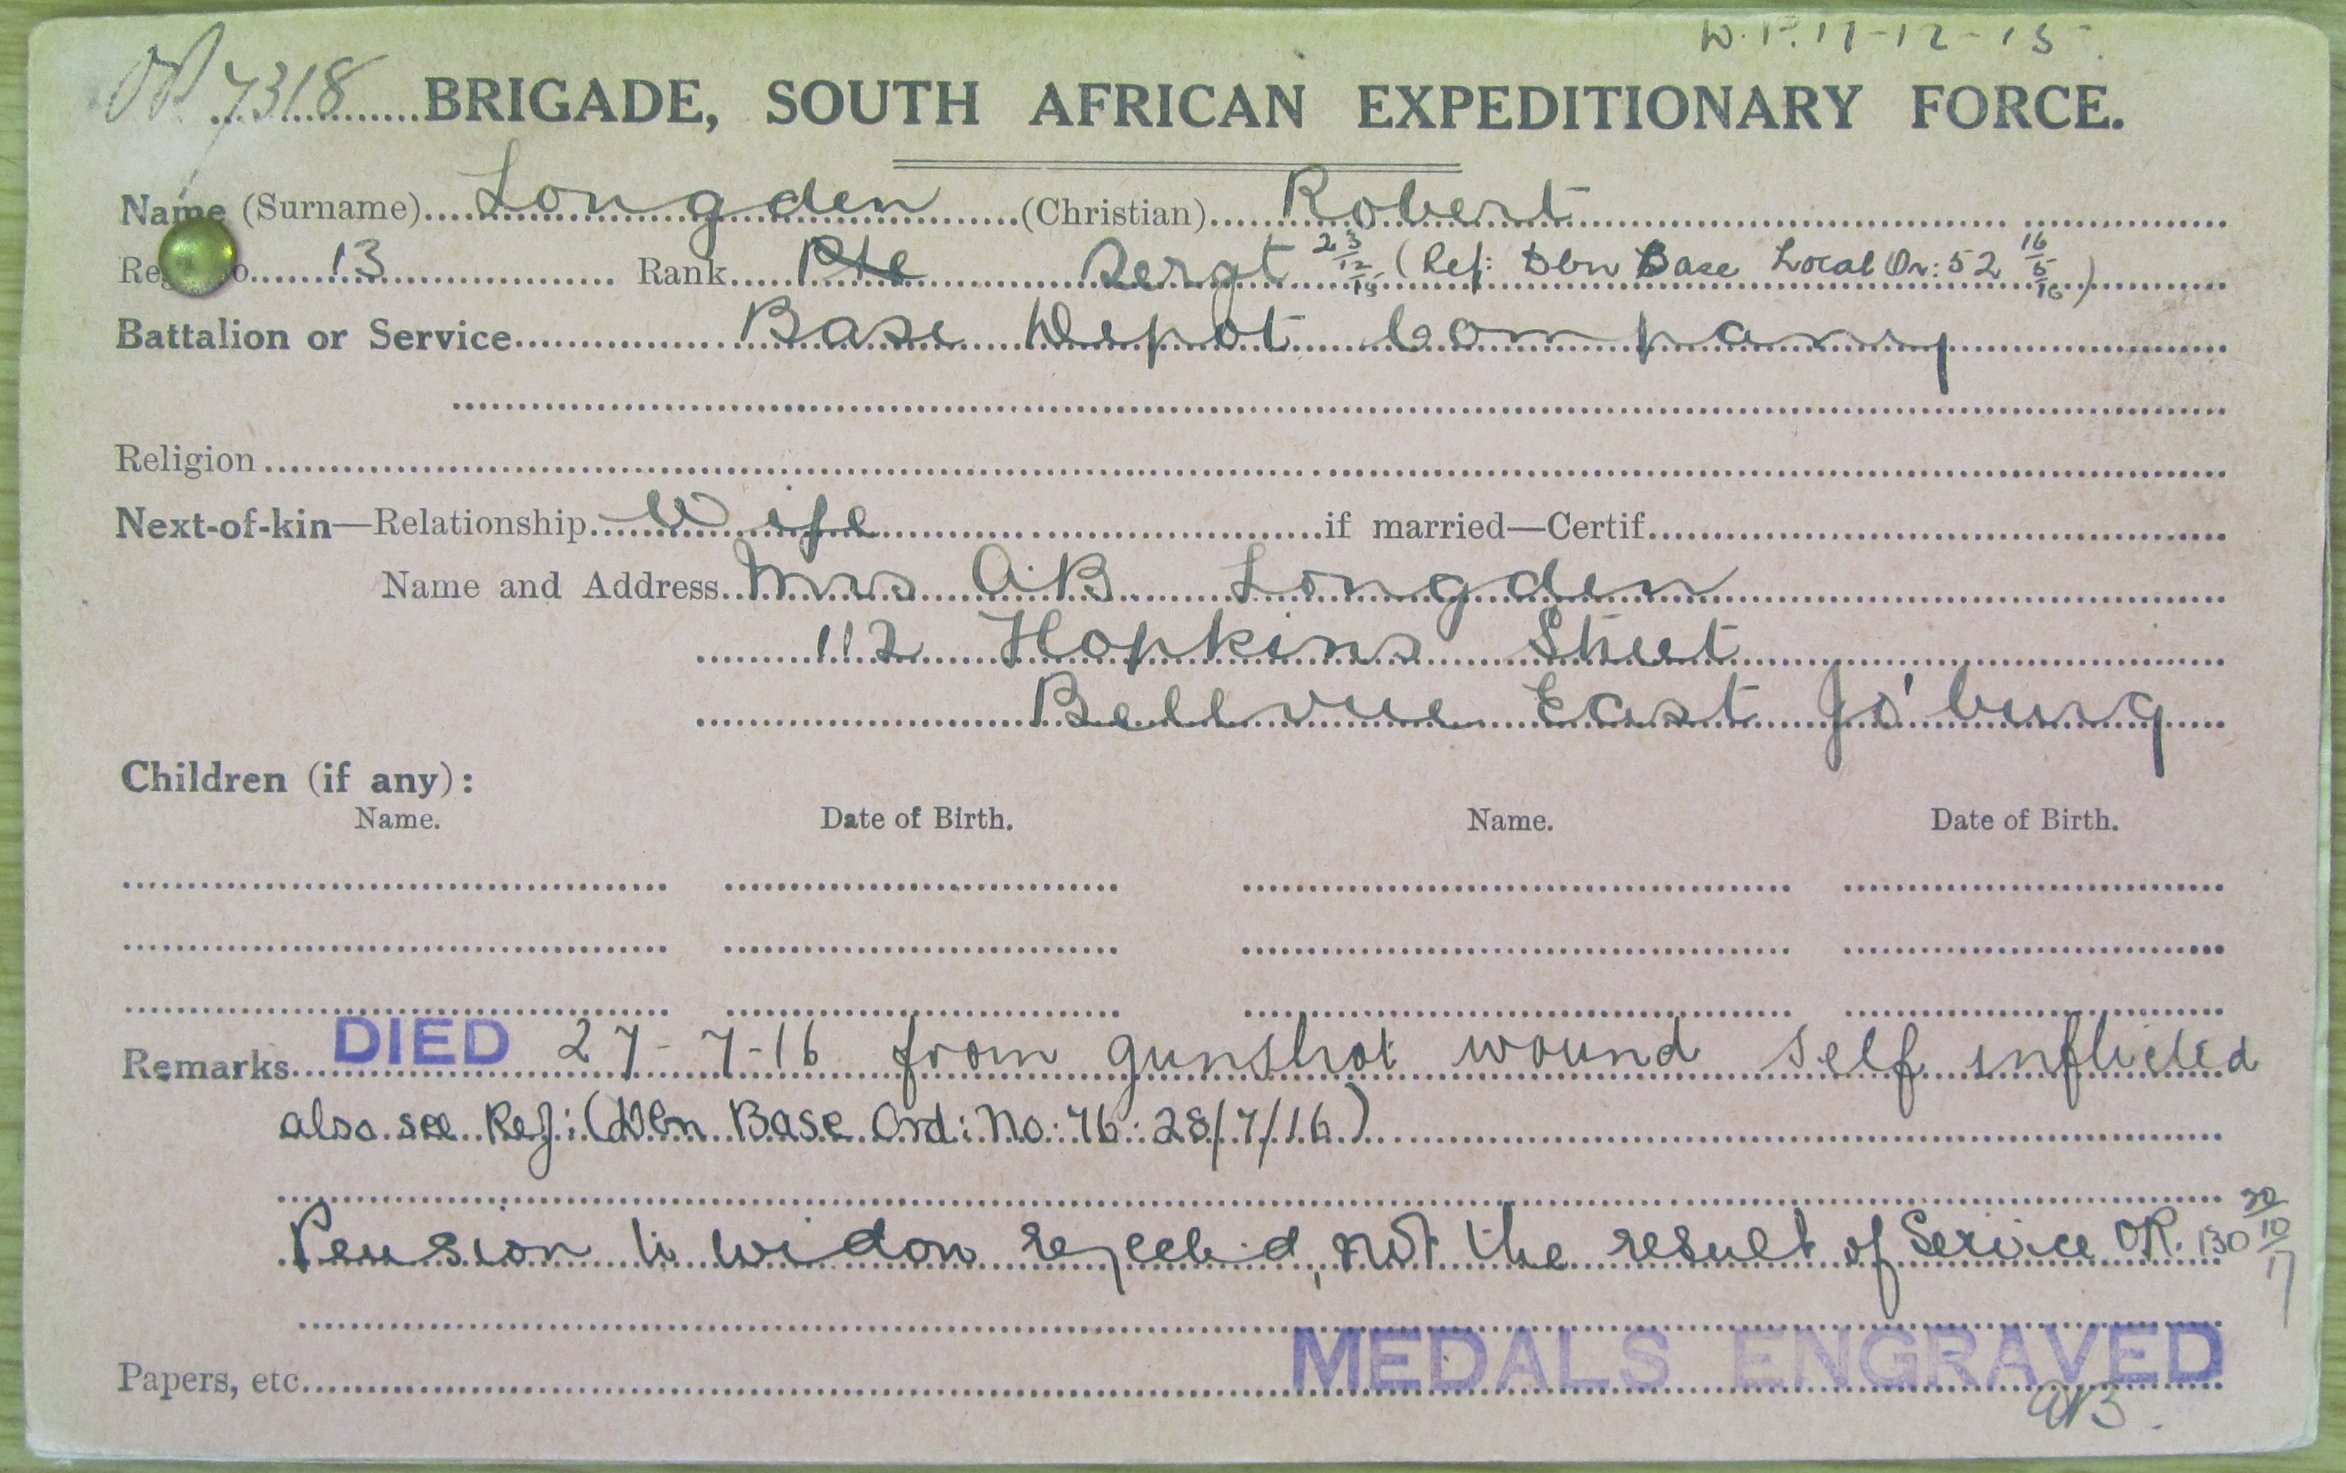 W.P. 17-12-15
OR 7318 BRIGADE, SOUTH AFRICAN EXPEDITIONARY FORCE.
Name (Surname) Longden (Christian) Robert
Reg o. 13 Rank Pte Sergt 23/12/15 (Ref: Dbn Base Local Or: 52 16/5/16)
Battalion or Service Base Depot Company
Religion
Next-of-kin—Relationship Wife if married—Certif
Name and Address Mrs A.B Longden
112 Hopkins Street
Bellevue East Jo'burg
Children (if any):
Name. Date of Birth. Name. Date of Birth.
Remarks DIED 27-7-16 from gunshot wound self inflicted
also see Ref: (Dbn Base Ord: No: 76: 28/7/16)
Pension to widow rejected, not the result of Service OR. 130 20/10/17
MEDALS ENGRAVED
Papers, etc